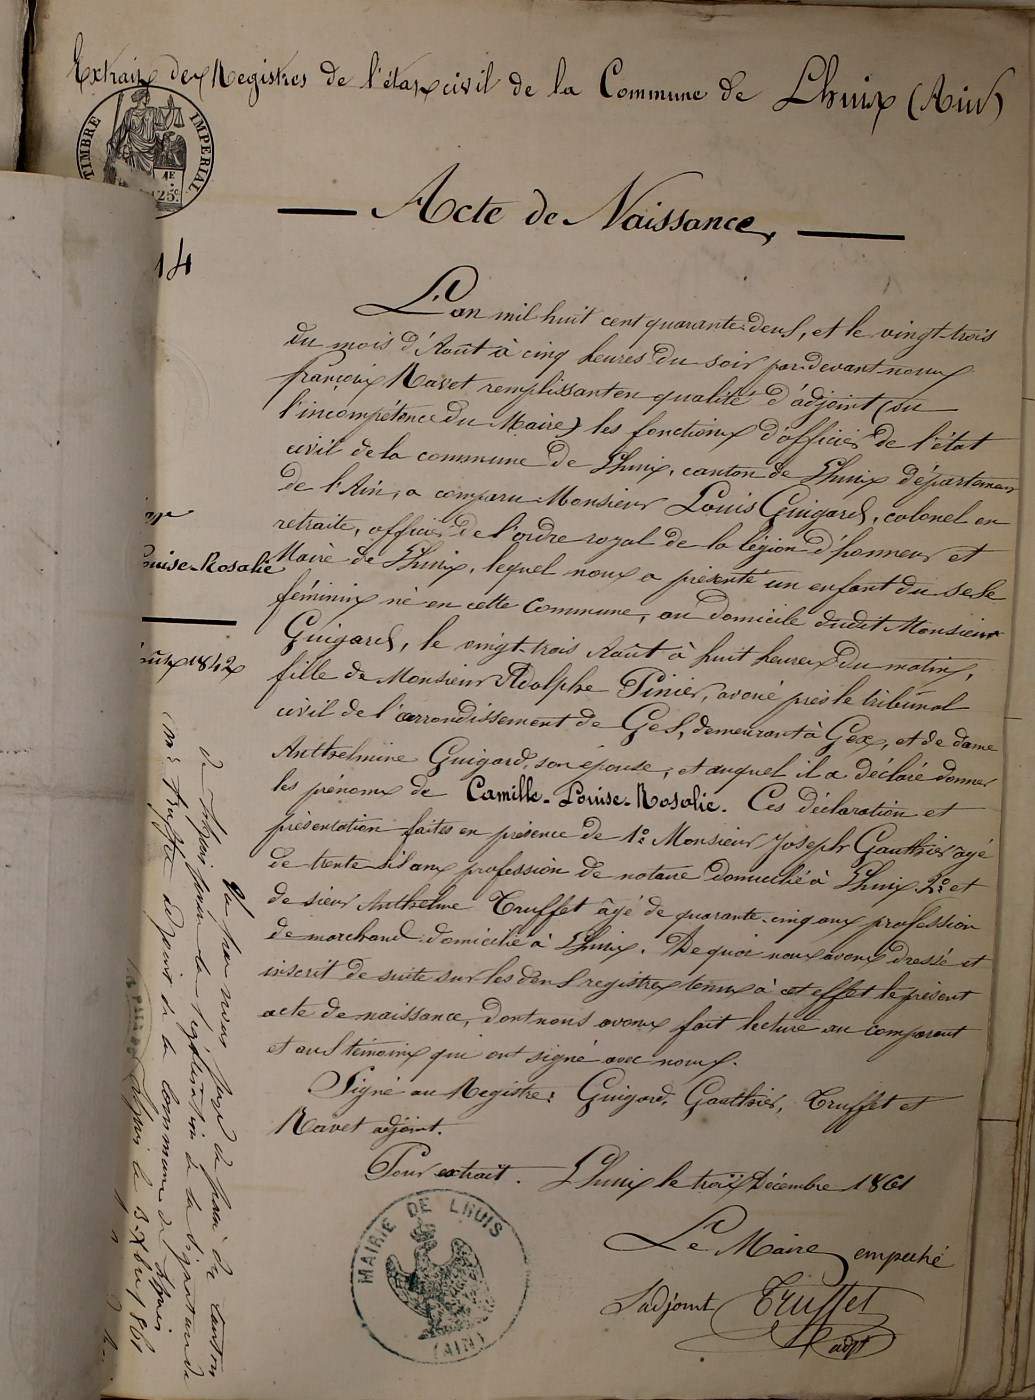 Extrait des Registres de l'état civil de la Commune de Lhuis (Ain)
TIMBRE IMPERIAL
25c
Acte de Naissance,
14
L'an mil huit cent quarante deux, et le vingt-trois
du mois d'Août à cinq heures du soir par devant nous
françois Ravet remplissant en qualité d'adjoint (vu
l'incompétence du Maire) les fonctions d'officier de l'état
civil de la commune de Lhuis, canton de Lhuis département
de l'Ain, a comparu Monsieur Louis Guigard, colonel en
retraite, officier de l'ordre royal de la légion d'honneur et
Maire de Lhuis, lequel nous a présenté un enfant du sexe
féminin né en cette commune, au domicile dudit Monsieur
Guigard, le vingt-trois Août à huit heures du matin,
fille de Monsieur Adolphe Pinier, avoué près le tribunal
civil de l'arrondissement de Gex, demeurant à Gex, et de dame
Anthelmine Guigard, son épouse, et auquel il a déclaré donner
les prénoms de Camille-Louise-Rosalie. Ces déclaration et
présentation faites en présence de 1o Monsieur Joseph Gauthier âgé
de trente six ans profession de notaire domicilié à Lhuis 2o et
de sieur Anthelme Truffet âgé de quarante-cinq ans profession
de marchand domicilié à Lhuis. De quoi nous avons dressé et
inscrit de suite sur les deux registres tenus à cet effet le présent
acte de naissance, dont nous avons fait lecture au comparant
et aux témoins qui ont signé avec nous.
Signé au Registre: Guigard, Gauthier, Truffet et
Ravet adjoint.
Pour extrait. Lhuis le trois Décembre 1861
Le Maire empêché
L'adjoint Truffet
adjt
MAIRIE DE LHUIS
(AIN)
ouise-Rosalie
août 1842
Vu par nous juge de paix du canton
de Lhuis pour la législation de la signature de
Mr Truffet adjoint de la commune de Lhuis
Lhuis le 3 Xbre 1861